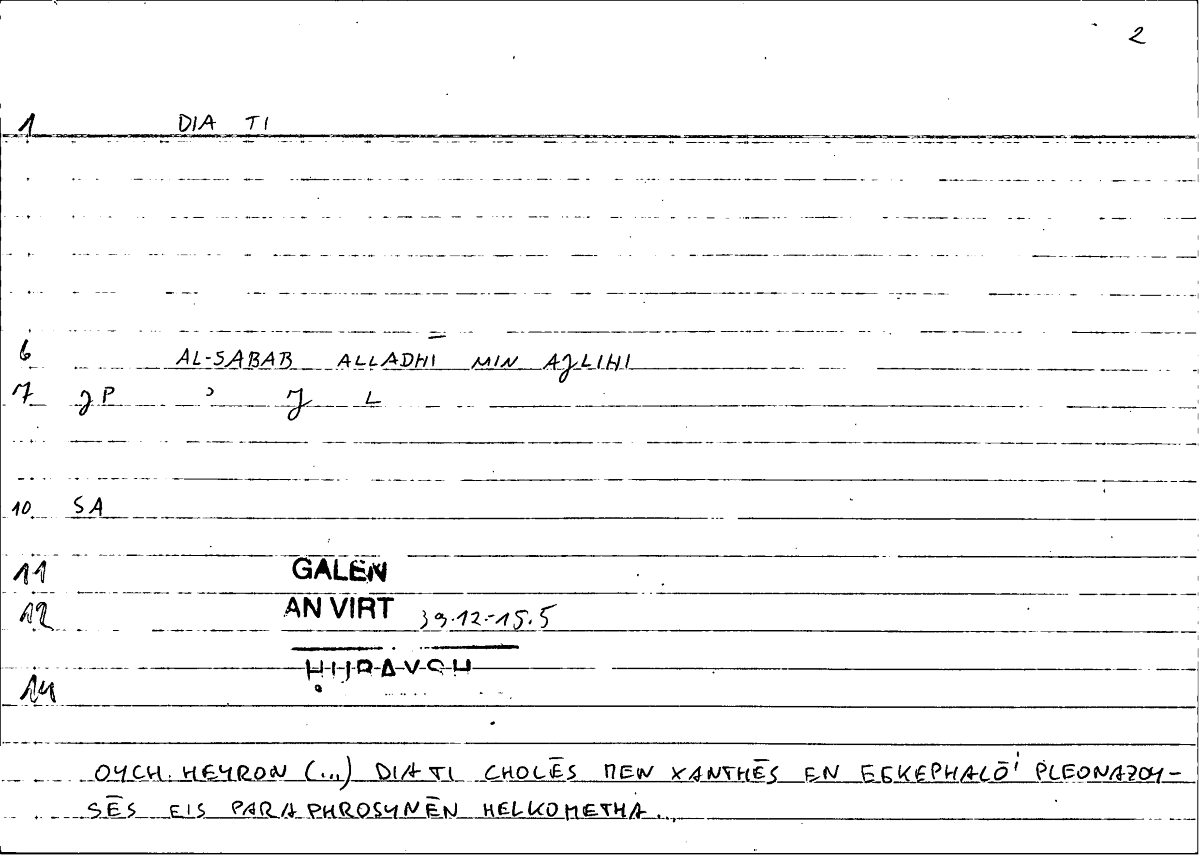 2
1 DIA TI
6 AL-SABAB ALLADHĪ MIN AJLIHI
7 JP ʾ J L
10 SA
11 GALEN
12 AN VIRT 39.12-15.5
ḤUBAYSH
14
OYCH HEYRON (...) DIA TI CHOLĒS MEN XANTHĒS EN EGKEPHALŌI PLEONAZOY-
SĒS EIS PARAPHROSYNĒN HELKOMETHA...